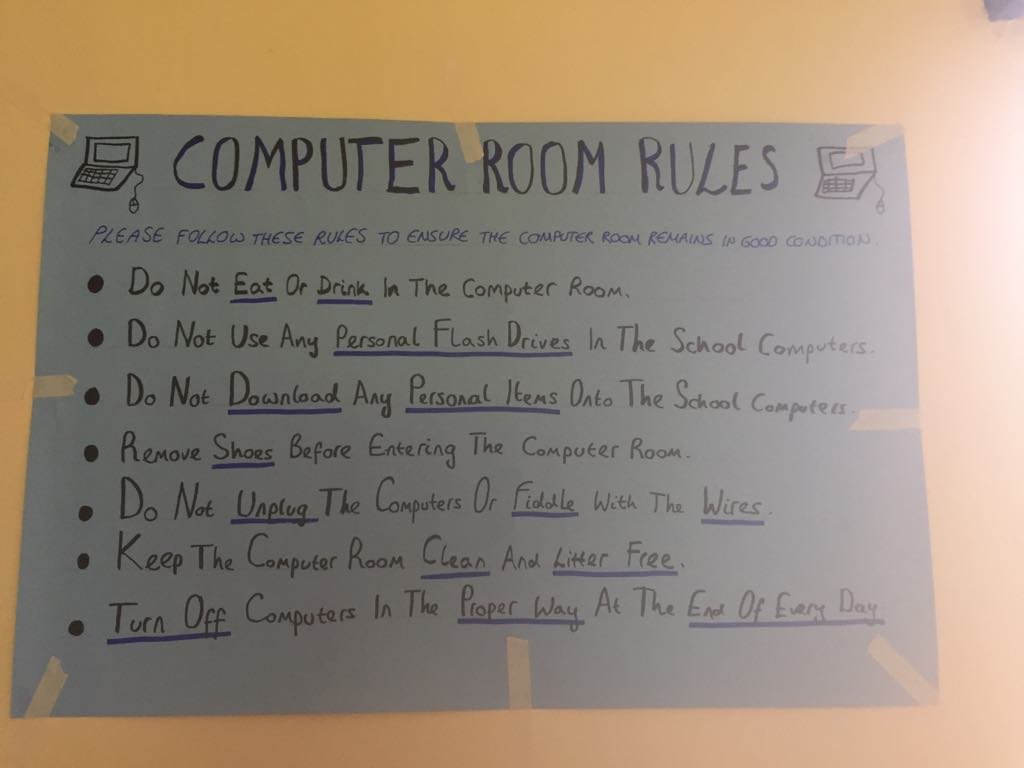 COMPUTER ROOM RULES
PLEASE FOLLOW THESE RULES TO ENSURE THE COMPUTER ROOM REMAINS IN GOOD CONDITION.
• Do Not Eat Or Drink In The Computer Room.
• Do Not Use Any Personal Flash Drives In The School Computers.
• Do Not Download Any Personal Items Onto The School Computers.
• Remove Shoes Before Entering The Computer Room.
• Do Not Unplug The Computers Or Fiddle With The Wires.
• Keep The Computer Room Clean And Litter Free.
• Turn Off Computers In The Proper Way At The End Of Every Day.